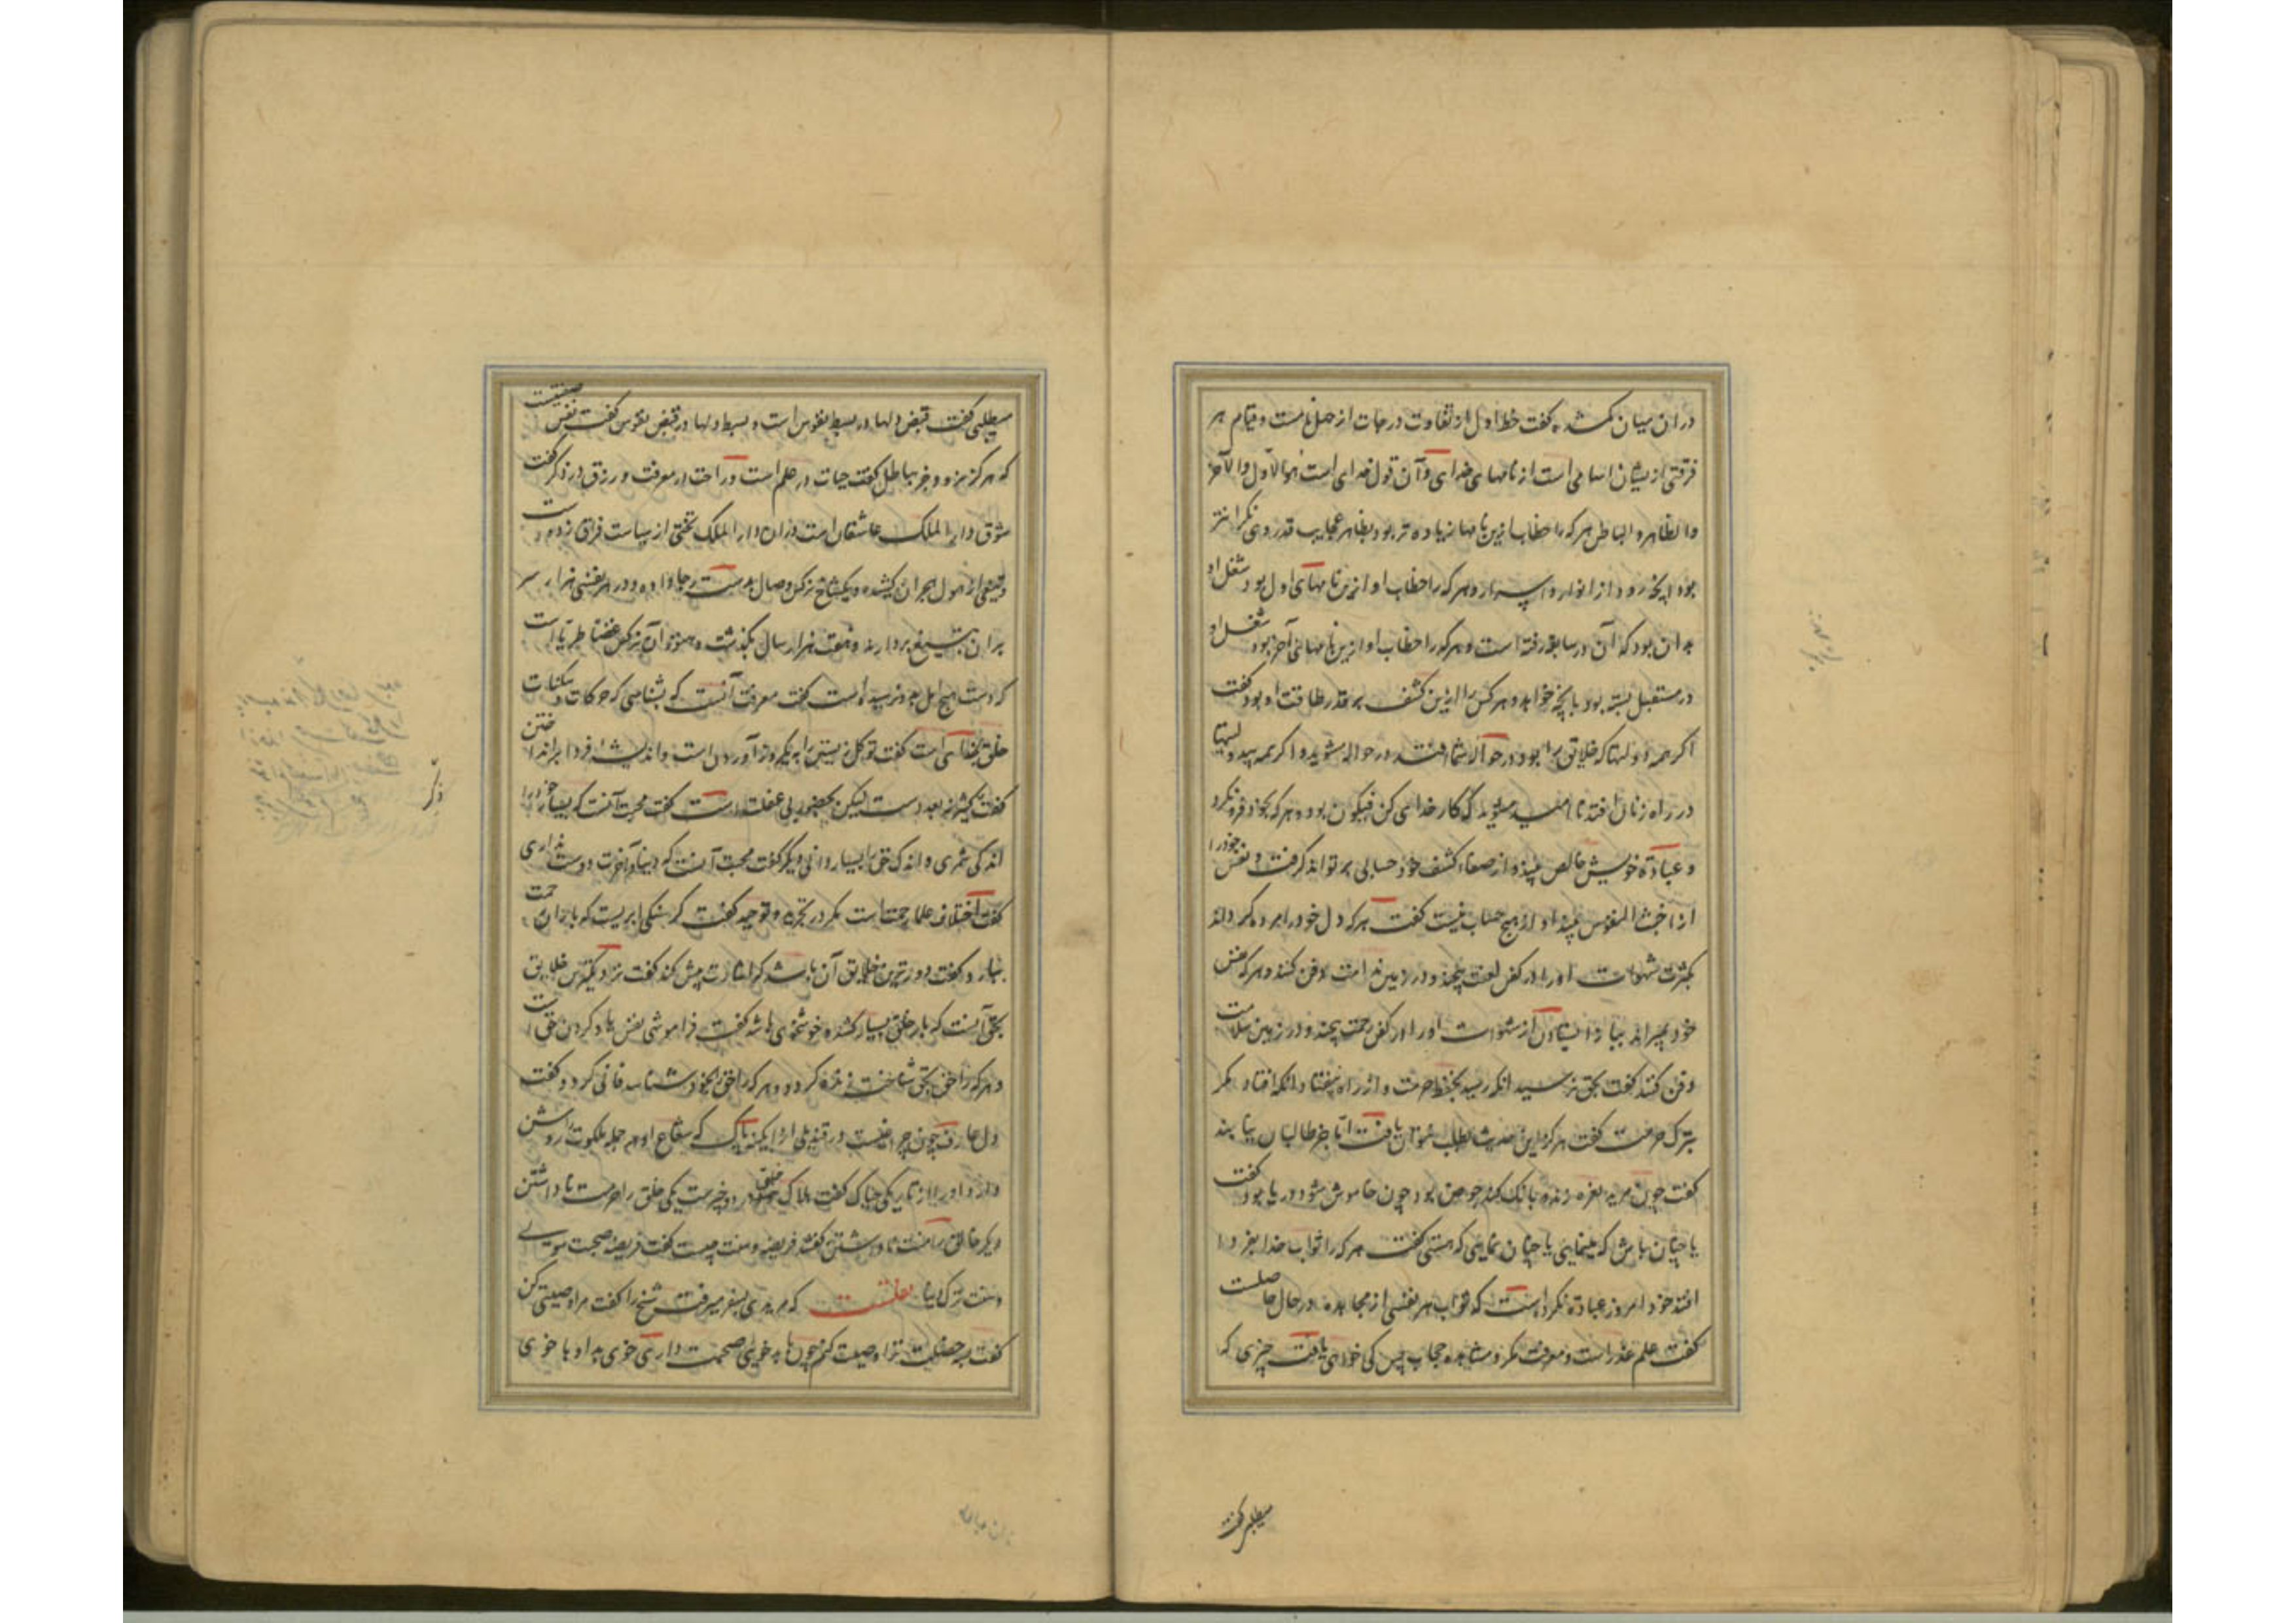 در ان میان کم شده و گفت حظ اولیا از تفاوت درجات از چهار نامست و قیام هر
فرقتی از یشان اسامی است از نامهای خدای و آن قول خدای است هو الاول والآخر
والظاهر و الباطن هر که را حظ او ازین نامها زیاده تر بود بظاهر عجایب قدر وی نگرانتر
بود انچه رود از انوار و اسرار و هر که را حظ او ازین نامهای اول بود شغل او
بدان بود که آن در سابقه رفته است و هر که را حظ او ازین نامهای آخر بود شغل او
در مستقبل بسته بود بانچه خواهد و هر کس را ازین کشف بر قدر طاقت او بود گفت
اگر همه دولتها که خلایق را بود در حوالۀ شما افتد در حواله مشوید و اگر همه بی دولتیها
در راه زنان افتد نا امید مشوید که کار خدای کن فیکون بود و هر که بخود فرونگرد
و عبادة خویش خالص بیند و از صفاء کشف خود حسابی بر تواند گرفت و نفس خود را
از اخبث النفوس نبیند او از هیچ حساب نیست گفت هر که دل خود را مرده گرداند
بکثرت شهوات او را در کفن لعنت پیچند و در زمین ندامت دفن کنند و هر که نفس
خود بمیراند بباز ایستادن از شهوات او را در کفن رحمت پیچند و در زمین سلامت
دفن کنند گفت بحق نرسید انکه رسید بحفظ حرمت و از راه نیفتاد انکه افتاد مگر
بترک حرمت گفت هر گز این حدیث بطلب نتوان یافت اما جز طالبان نیابند
گفت چون مرید نعره زند و بانک کند حوضی بود چون خاموش شود دریا بود گفت
یا چنان باش که مینمایی یا چنان نمای که هستی گفت هر که را ثواب خدا بفردا
افتد خود امروز عبادة نکرده است که ثواب هر نفسی از مجاهده در حال حاصلست
گفت علم عذر است و معرفت مکر و مشاهده حجاب پس کی خواهی یافت چیزی که
میطلبی گفت
میطلبی گفت قبض دلها در بسط نفوس است و بسط دلها در قبض نفوس گفت نفس صفتیست
که هرگز نرود جز بباطل گفت حیات در علم است و راحت در معرفت و رزق در ذکر گفت
شوق دار الملک عاشقان است دران دار الملک تختی از سیاست فراق زده است
و تیغی از هول هجران کشیده و یکشاخ نرگس وصال بدست رجا داده و در هر نفسی هزار سر
بران تیغ بردارند و هفت هزار سال بگذشت و هنوز آن نرگس غضا طریا است
که دست هیچ امل بدو نرسیده است گفت معرفت آنست که بشناسی که حرکات و سکنات
خلق بخدای است گفت توکل زیستن را بیکروز آوردن است و اندیشه فردا برانداختن
گفت ذکر کثیر نه بعدد است لیکن بحضور بی غفلت است گفت محبت آنست که بسیار خود را
ذکر
اندکی شمری و اندک حق را بسیار دانی و دیگر گفت محبت آنست که دنیا و آخرت دوست نداری
گفت اختلاف علما رحمت است مگر در تجرید و توحید گفت گرسنگی ابریست که باران رحمت
ببارد گفت دورترین خلایق آن باشد که اشارت بیش کند گفت نزدیکترین خلایق
بحق آنست که بار خلق بسیار کشد و خوشخوی باشد گفت فراموشی نفس یاد کردن حق است
و هر که را حق بحق شناخت زنده گردد و هر که را حق بخود شناسد فانی گردد و گفت
دل عارف چون چراغیست در قندیلی از آبگینه پاک که شعاع او همه جمله ملکوت روشن
دارد او را از تاریکی چه باک گفت هلاک خلق در دو چیزست یکی خلق را حرمت نا داشتن
دیگر خالق را منت نا داشتن گفتند فریضه و سنت چیست گفت فریضه صحبت مولی
و سنت ترک دنیا نقلست که مریدی بسفر میرفت شیخ را گفت مرا وصیتی کن
گفت بسه خصلت ترا وصیت کنم چون با بد خوئی صحبت داری خوی بد او با خوی